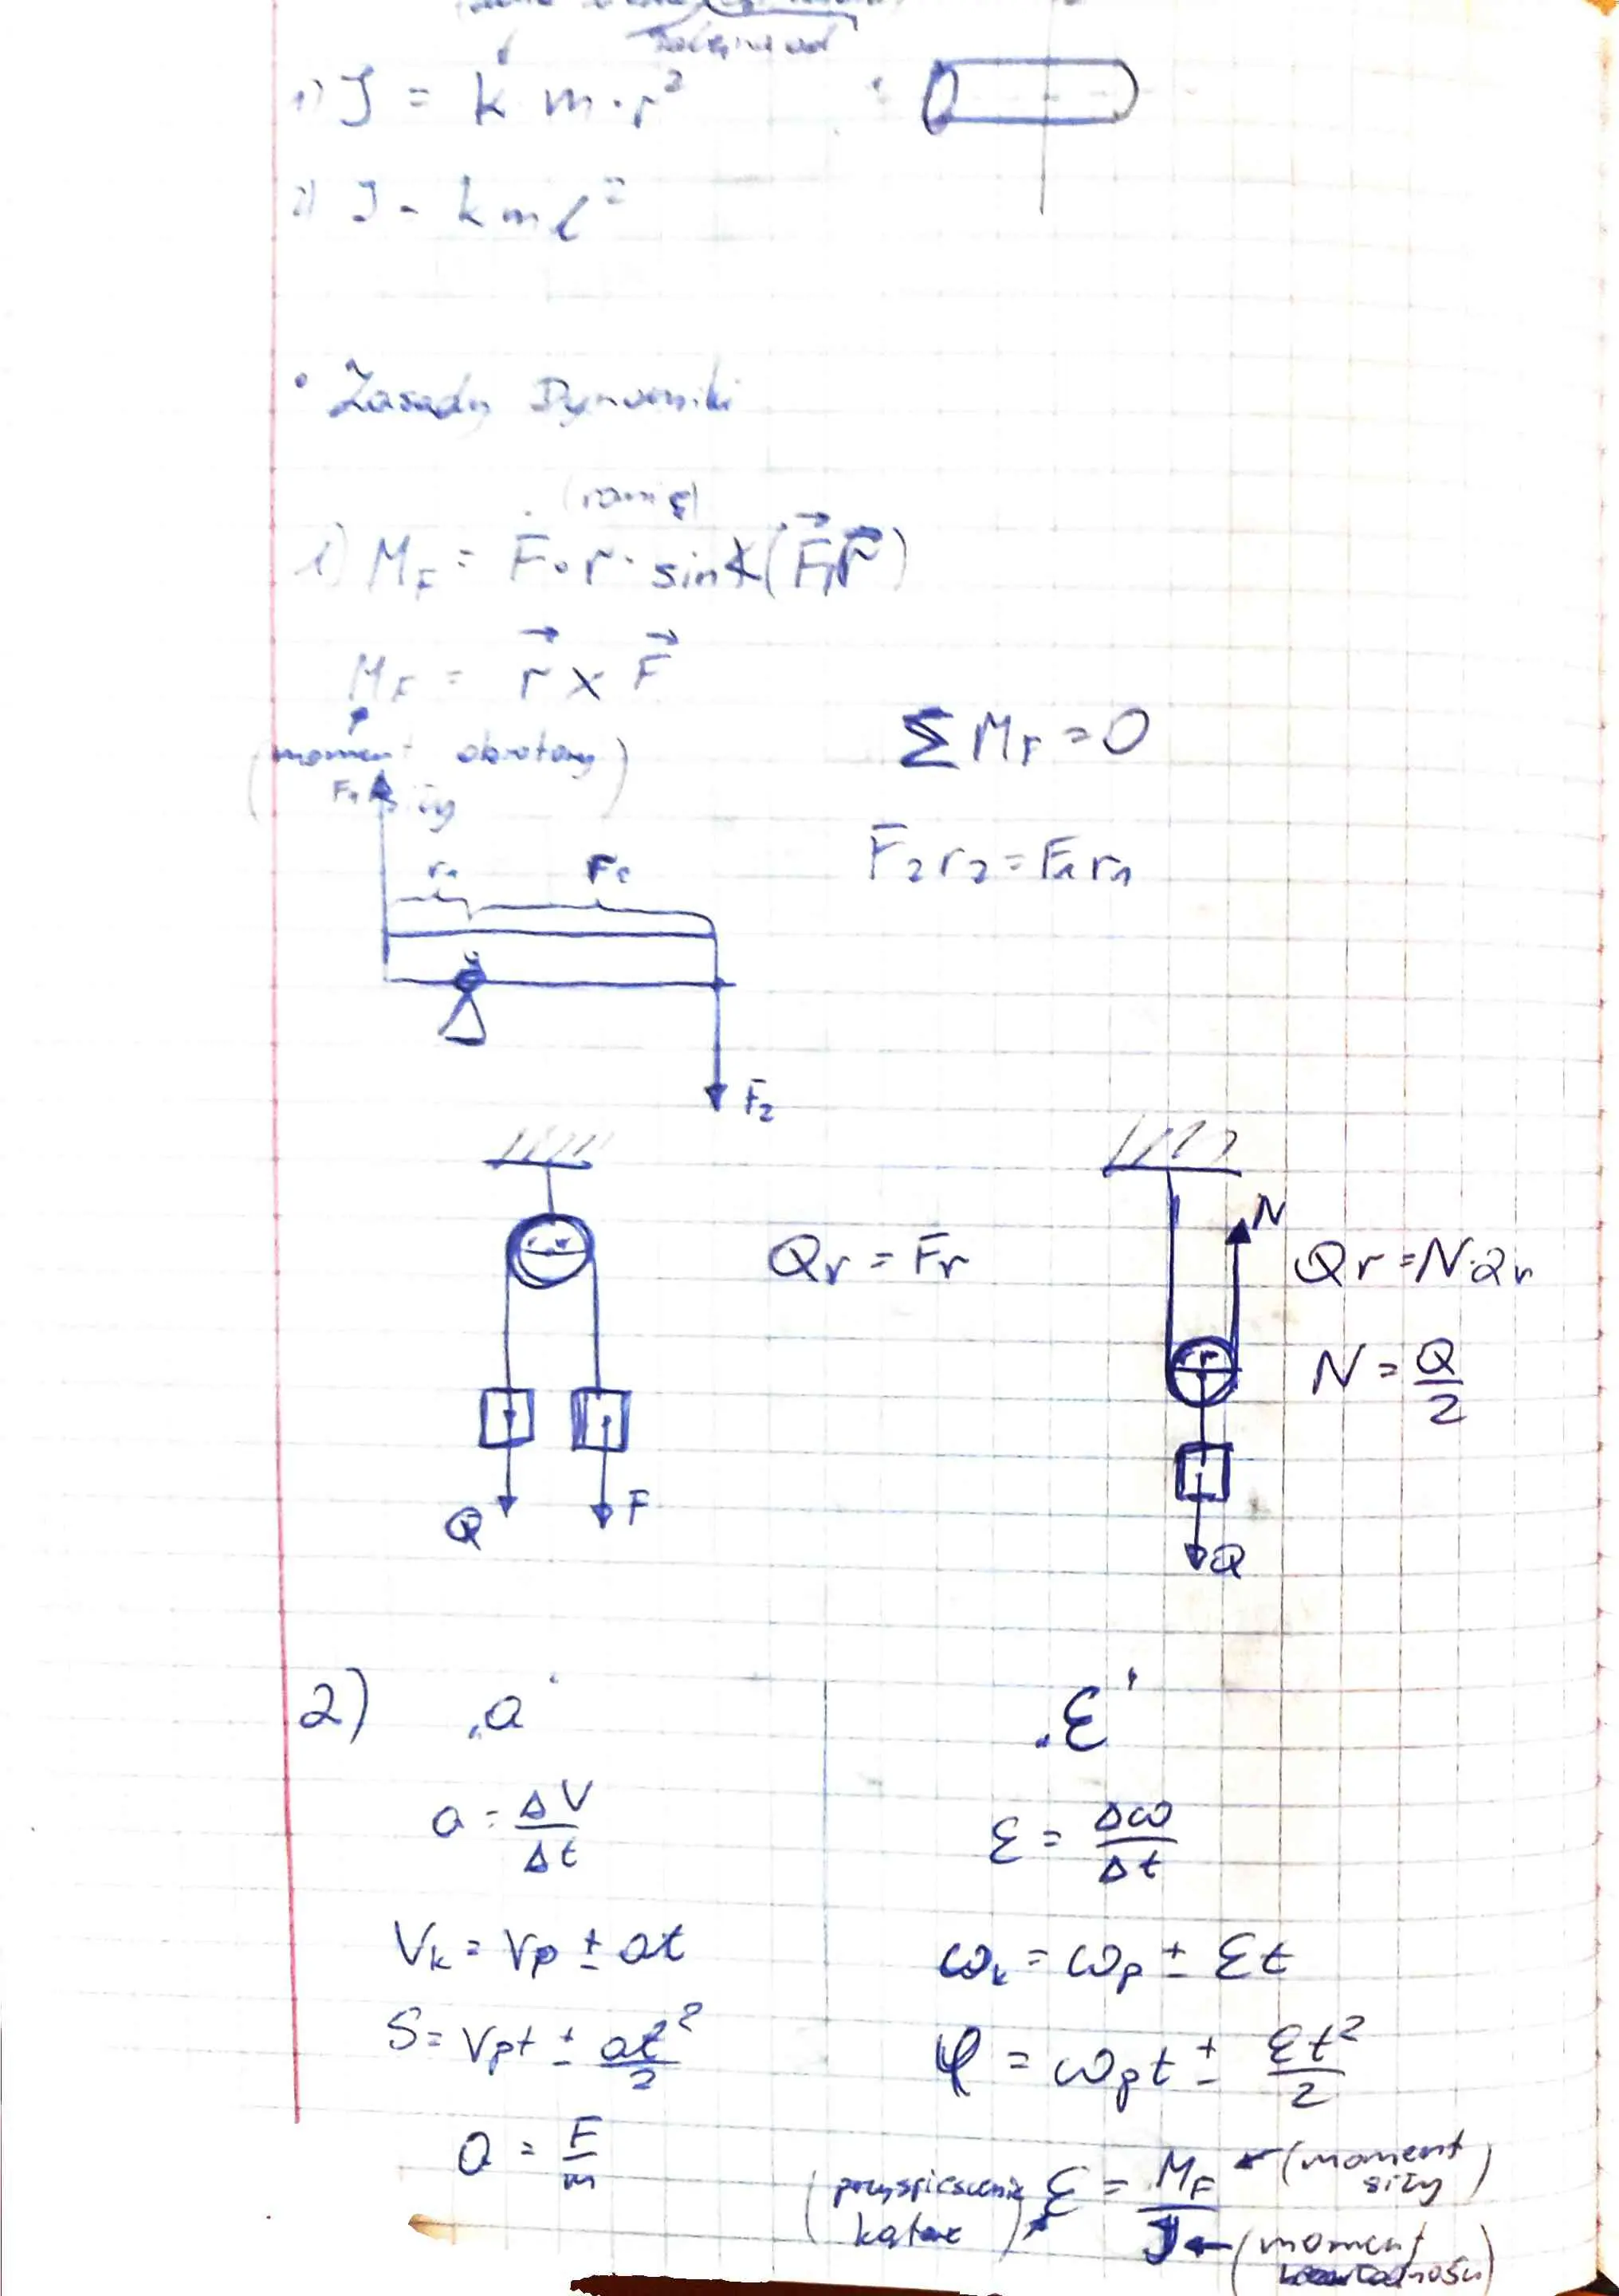 1) J = k m · r²
2) J = k m l²
• Zasady Dynamiki
(ramię)
1) M_F = F · r · sin∢(F⃗, r⃗)
M_F = r⃗ × F⃗
(moment obrotowy)
siły
ΣM_F = 0
F₂r₂ = F₁r₁
F₁
r₁
F₂
Qr = Fr
Q
F
N
Qr = N·2r
r
N = Q/2
Q
2) a
a = ΔV/Δt
V_k = V_p ± at
S = V_pt ± at²/2
a = F/m
ε
ε = Δω/Δt
ω_k = ω_p ± εt
φ = ω_pt ± εt²/2
(przyspieszenie kątowe) ε = M_F/J
(moment siły)
(moment bezwładności)